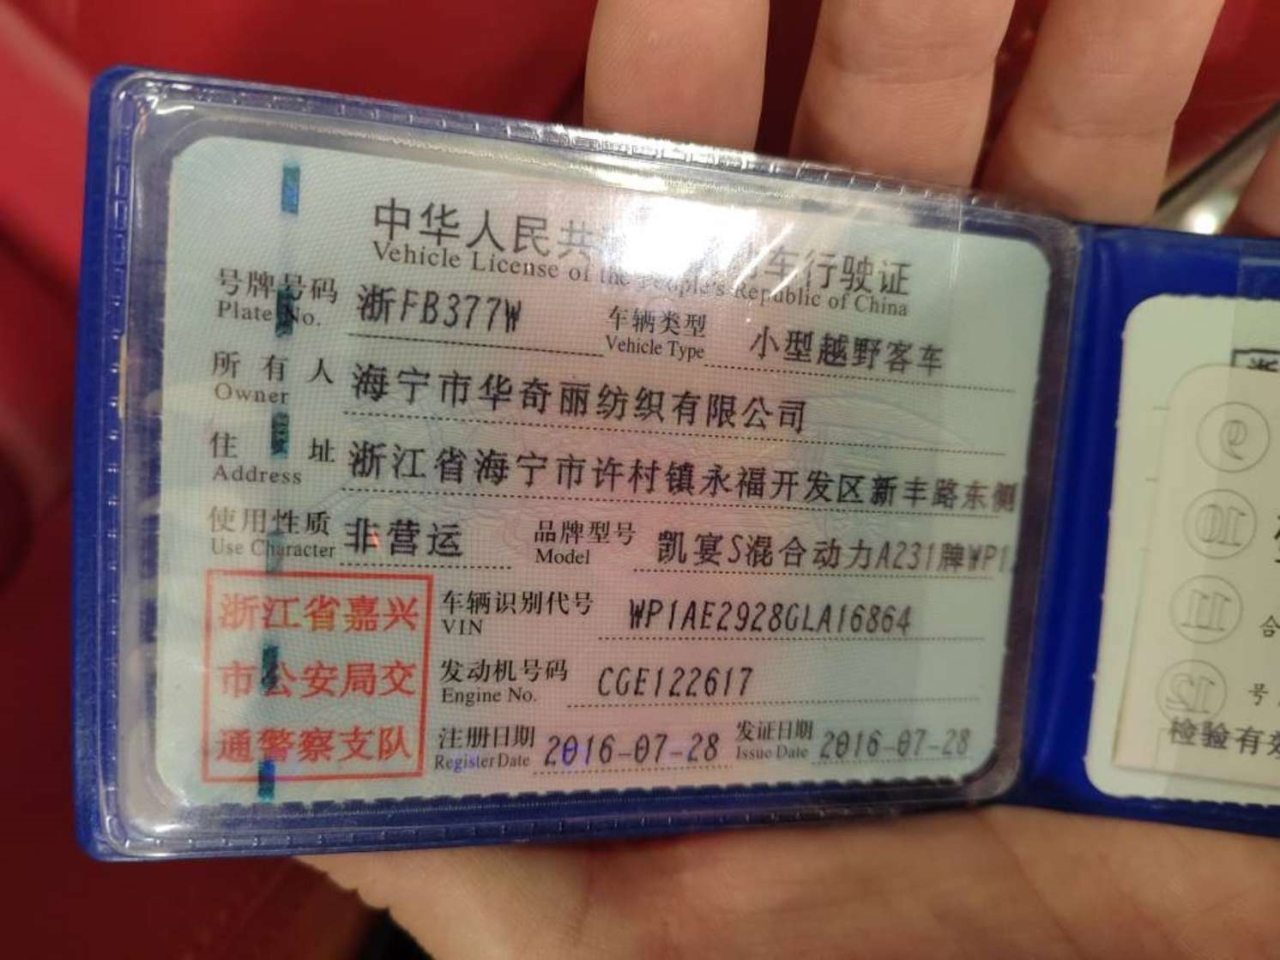 中华人民共 车行驶证
Vehicle License of the People's Republic of China
号牌号码 浙FB377W 车辆类型 小型越野客车
Plate No. Vehicle Type
所有人 海宁市华奇丽纺织有限公司
Owner
住址 浙江省海宁市许村镇永福开发区新丰路东侧
Address
使用性质 非营运 品牌型号 凯宴S混合动力A231牌WP1
Use Character Model
浙江省嘉兴
市公安局交
通警察支队
车辆识别代号 WP1AE2928GLA16864
VIN
发动机号码 CGE122617
Engine No.
注册日期 2016-07-28 发证日期 2016-07-28
Register Date Issue Date
9
10
11
12
合
号
检验有效